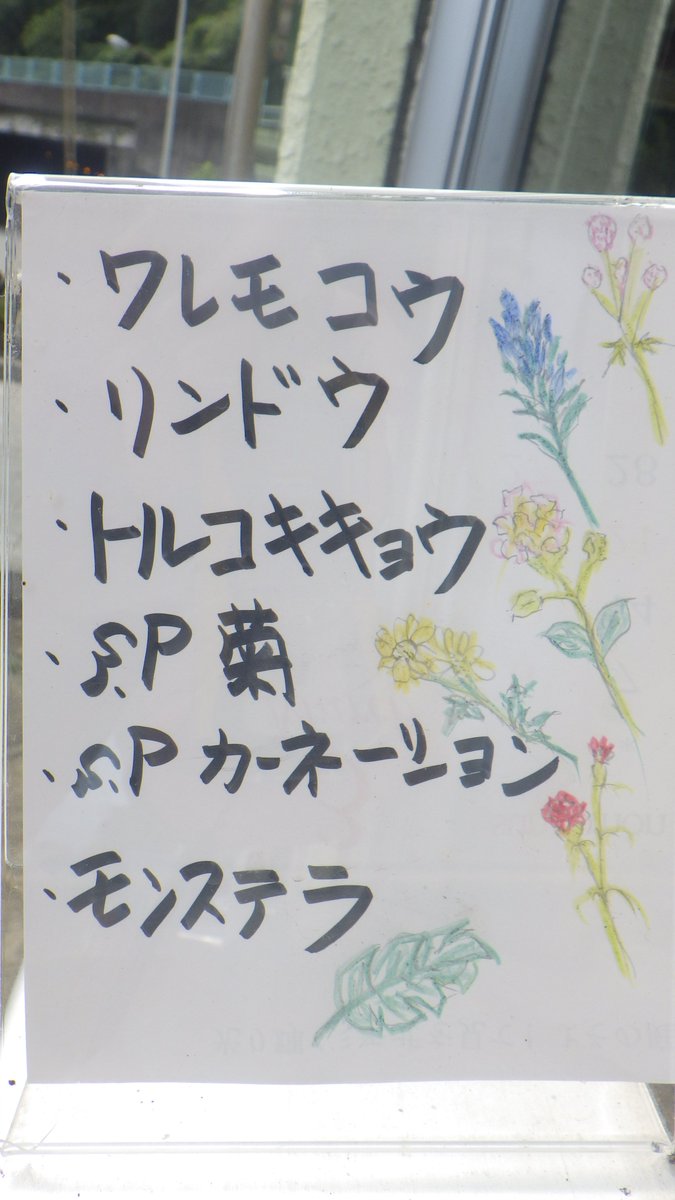 ・ワレモコウ
・リンドウ
・トルコキキョウ
・S.P 菊
・S.P カーネーション
・モンステラ